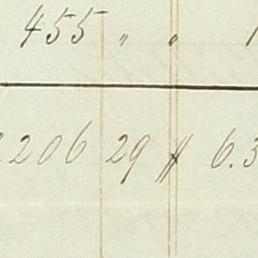 455 " "
206 29 # 6.3